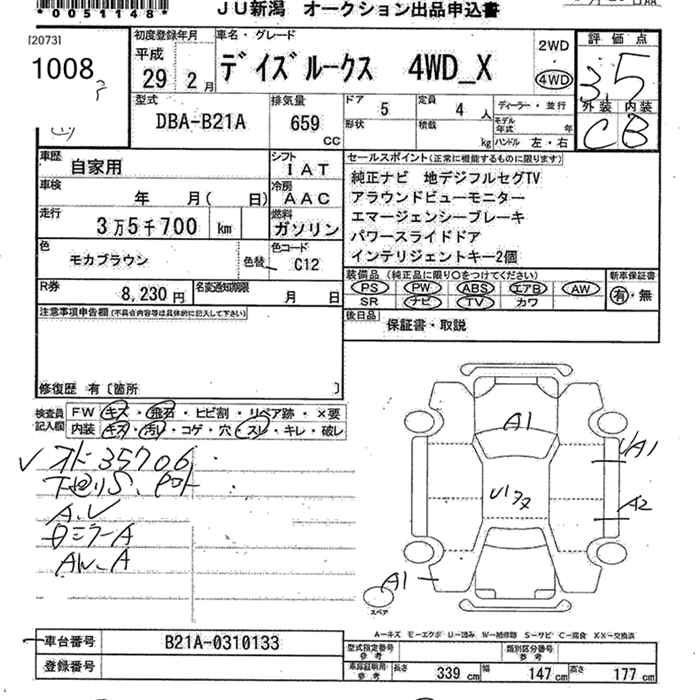 *0051148*
JU新潟 オークション出品申込書
[2073]
1008
初度登録年月
平成
29年 2月
車名・グレード
デイズルークス 4WD_X
2WD
4WD
評価点
3.5
外装 内装
C B
型式
DBA-B21A
排気量
659
CC
ドア 5
定員 4 人
形状
積載 kg
ディーラー・並行
モデル年式 年
ハンドル 左・右
車歴
自家用
シフト
IAT
車検
年 月( 日)
冷房
AAC
走行
3万5千700 km
燃料
ガソリン
色
モカブラウン
色替
色コード
C12
R券
8,230円
名変通知期限
月 日
セールスポイント(正常に機能するものに限ります)
純正ナビ 地デジフルセグTV
アラウンドビューモニター
エマージェンシーブレーキ
パワースライドドア
インテリジェントキー2個
装備品(純正品に限り○をつけてください)
PS PW ABS エアB AW
SR ナビ TV カワ
新車保証書
有・無
後日品
保証書・取説
注意事項申告欄(不具合内容等は具体的に記入して下さい)
修復歴 有〔箇所 〕
検査員
記入欄
FW キズ・飛石・ヒビ割・リペア跡・×要
内装 キズ・汚れ・コゲ・穴・スレ・キレ・破レ
35706
A.V
AW.A
A1
UA1
U1
A2
A1
スペア
A-キズ E-エクボ U-凹み W-補修跡 S-サビ C-腐食 XX-交換済
車台番号
B21A-0310133
登録番号
型式指定番号
参考
類別区分番号
参考
車庫証明用
参考
長さ 339 cm 幅 147 cm 高さ 177 cm